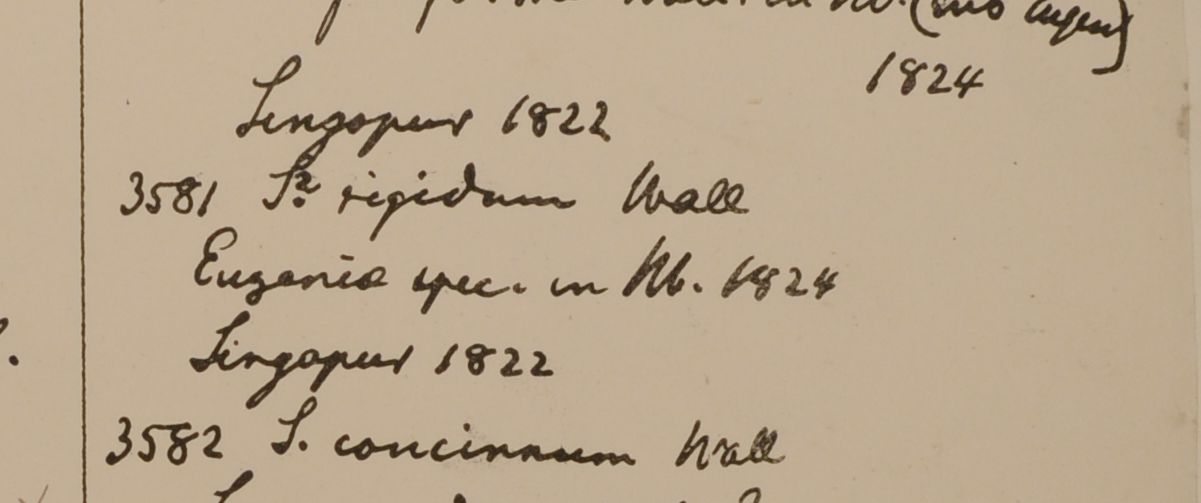 1824
Singapur 1822
3581 S? rigidum Wall
Eugenia spec. in Hb. 1824
Singapur 1822
3582 S. concinnum Wall